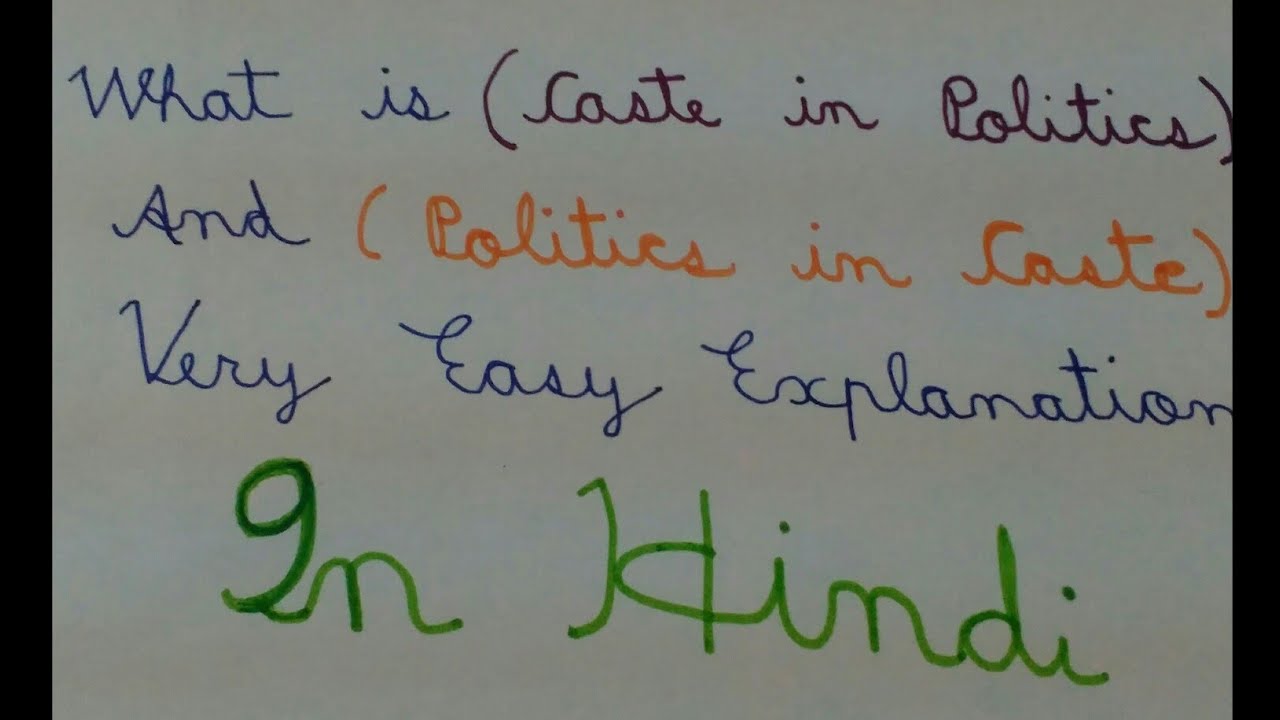 What is (Caste in Politics)
And (Politics in Caste)
Very Easy Explanation
In Hindi